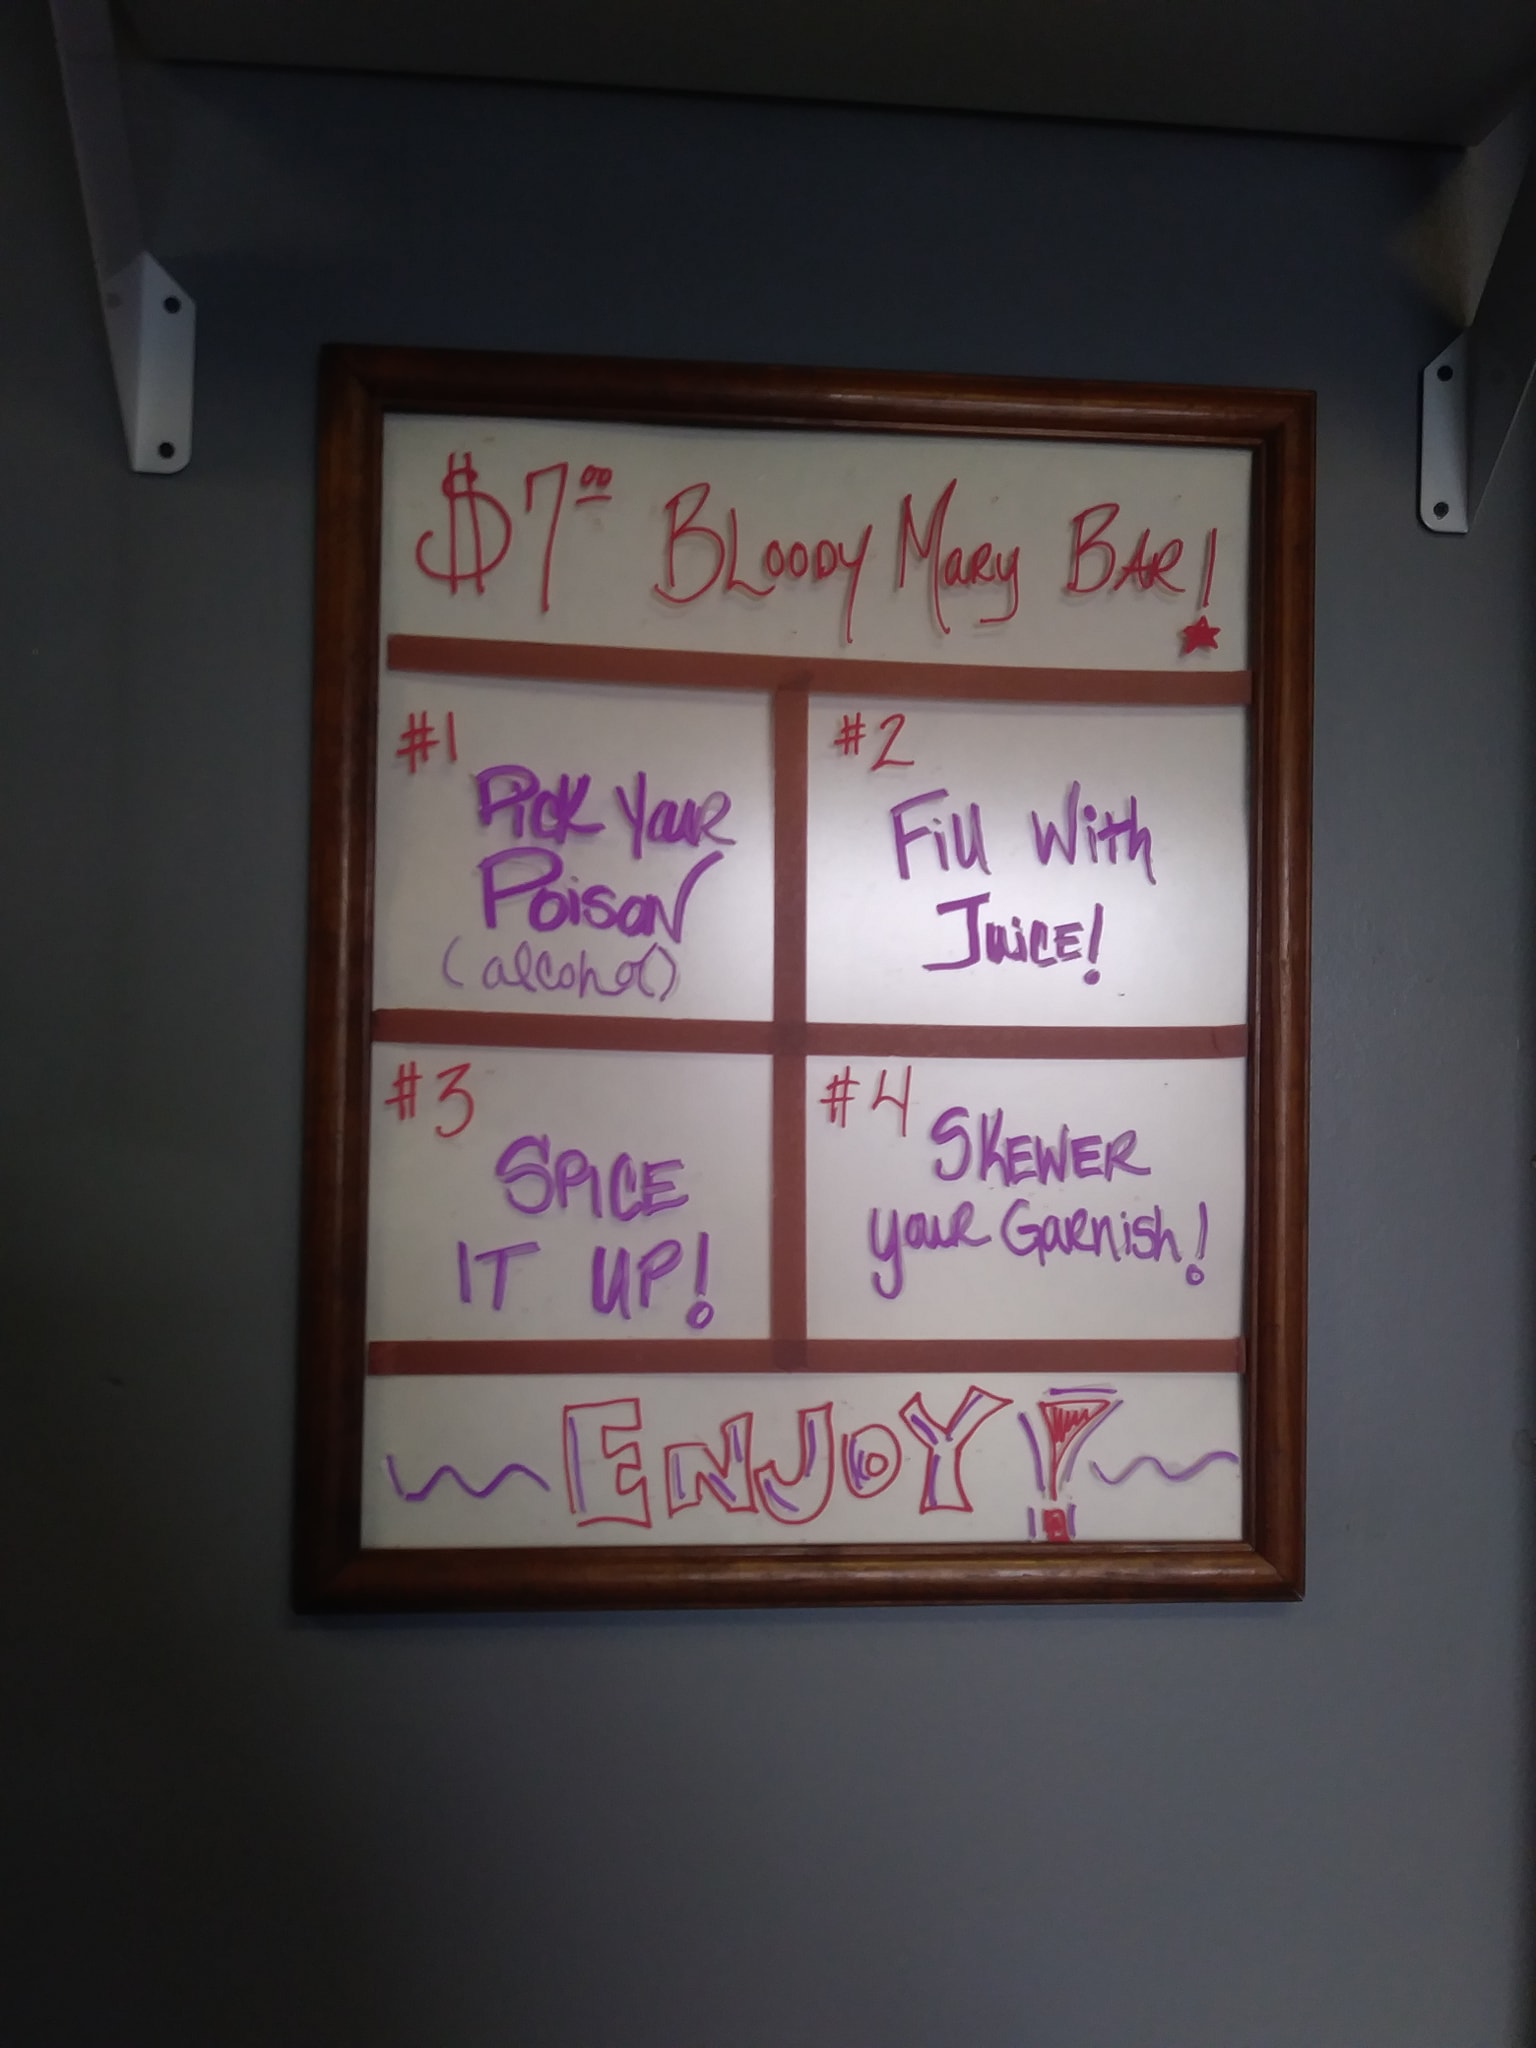 $7.00 Bloody Mary Bar!
#1
Pick Your
Poison
(alcohol)
#2
Fill With
Juice!
#3
Spice
It Up!
#4
Skewer
your Garnish!
Enjoy!